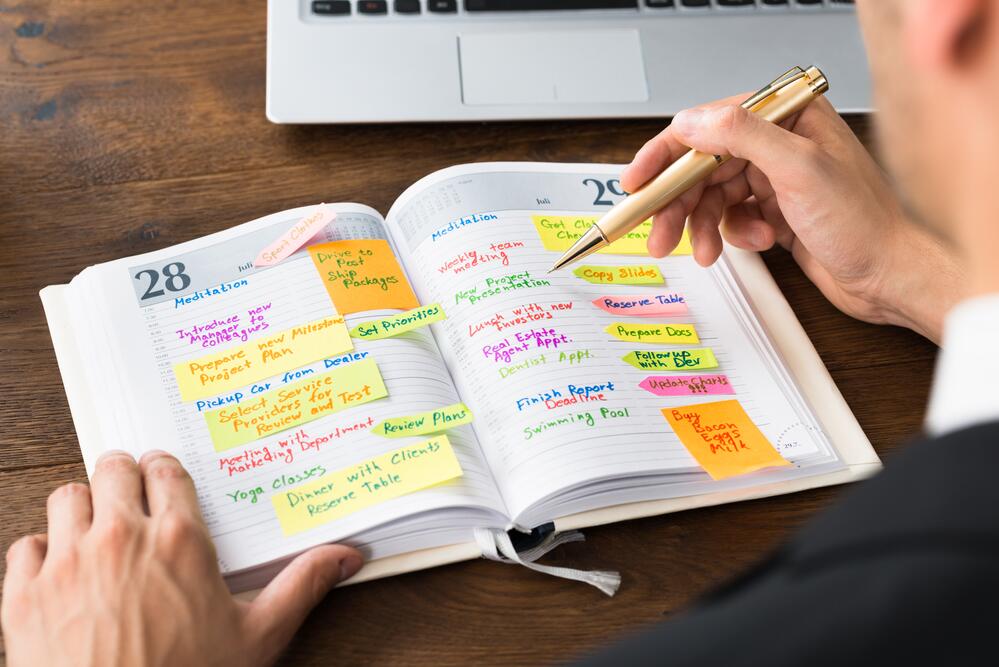 28
Juli
Sport Clothes
Meditation
Drive to
Post
Ship
Packages
Introduce new
Manager to
collegues
Set Priorities
Prepare new Milestone
Project Plan
Pickup Car from Dealer
Select Service
Providers for
Review and Test
Review Plans
Meeting with
Marketing Department
Yoga Classes
Dinner with Clients
Reserve Table
Juli
29
Meditation
Get
Weekly team
meeting
Copy Slides
New Project
Presentation
Reserve Table
Lunch with new
Investors
Prepare Docs
Real Estate
Agent Appt.
Followup
with Dev
Dentist Appt.
Update Charts
Finish Report
Deadline
Buy
Bacon
Eggs
Milk
Swimming Pool